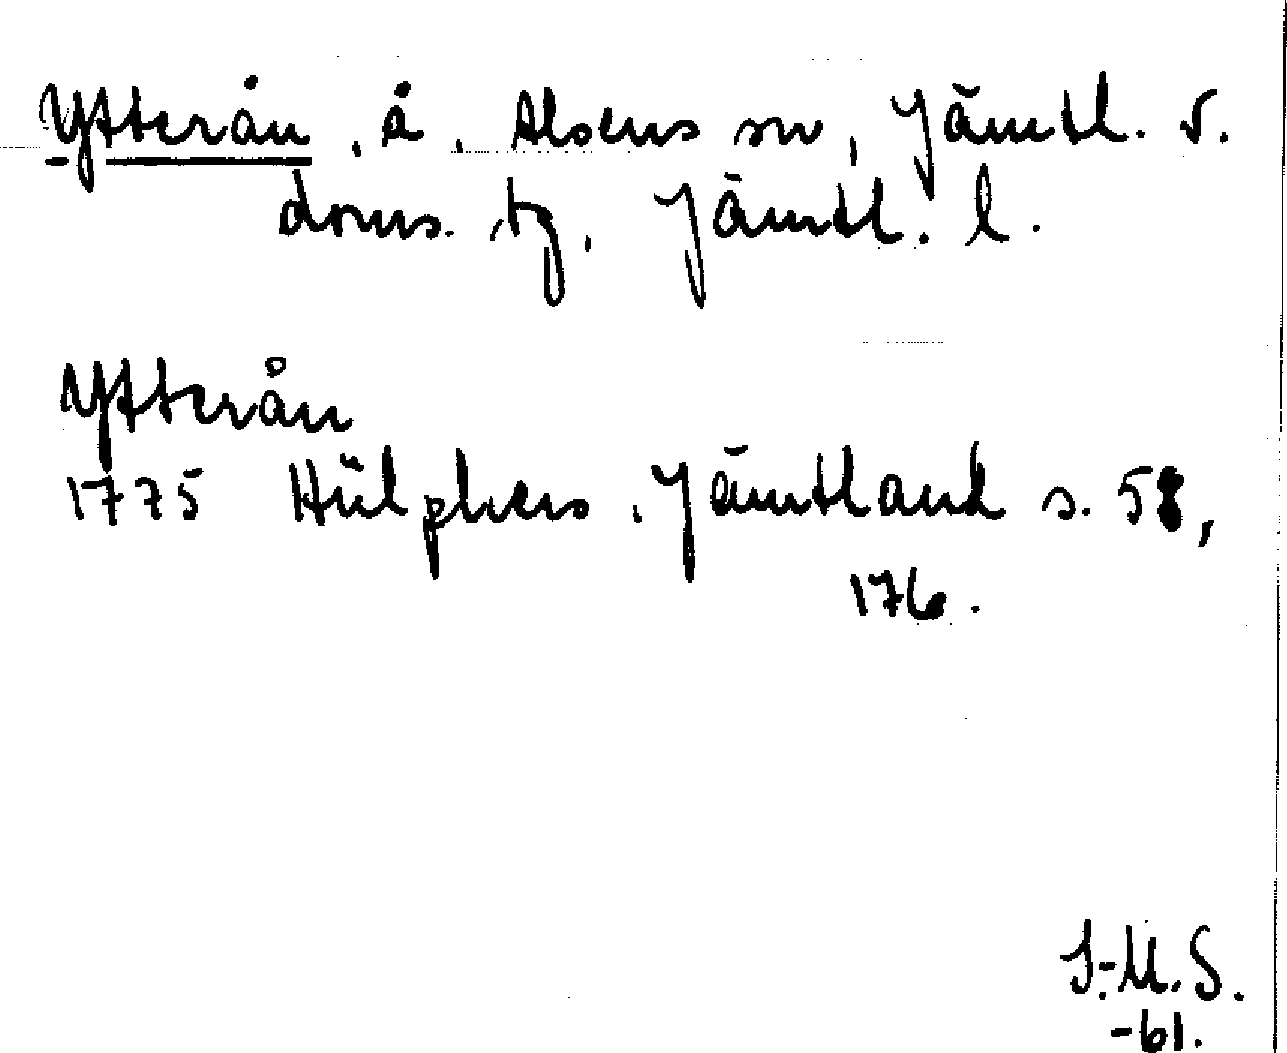 Ytterån, å, Alsens sn, Jämtl. v.
doms. tg, Jämtl. l.
Ytterån
1775 Hülphers, Jämtland s. 58,
176.
I.-M. S.
-61.